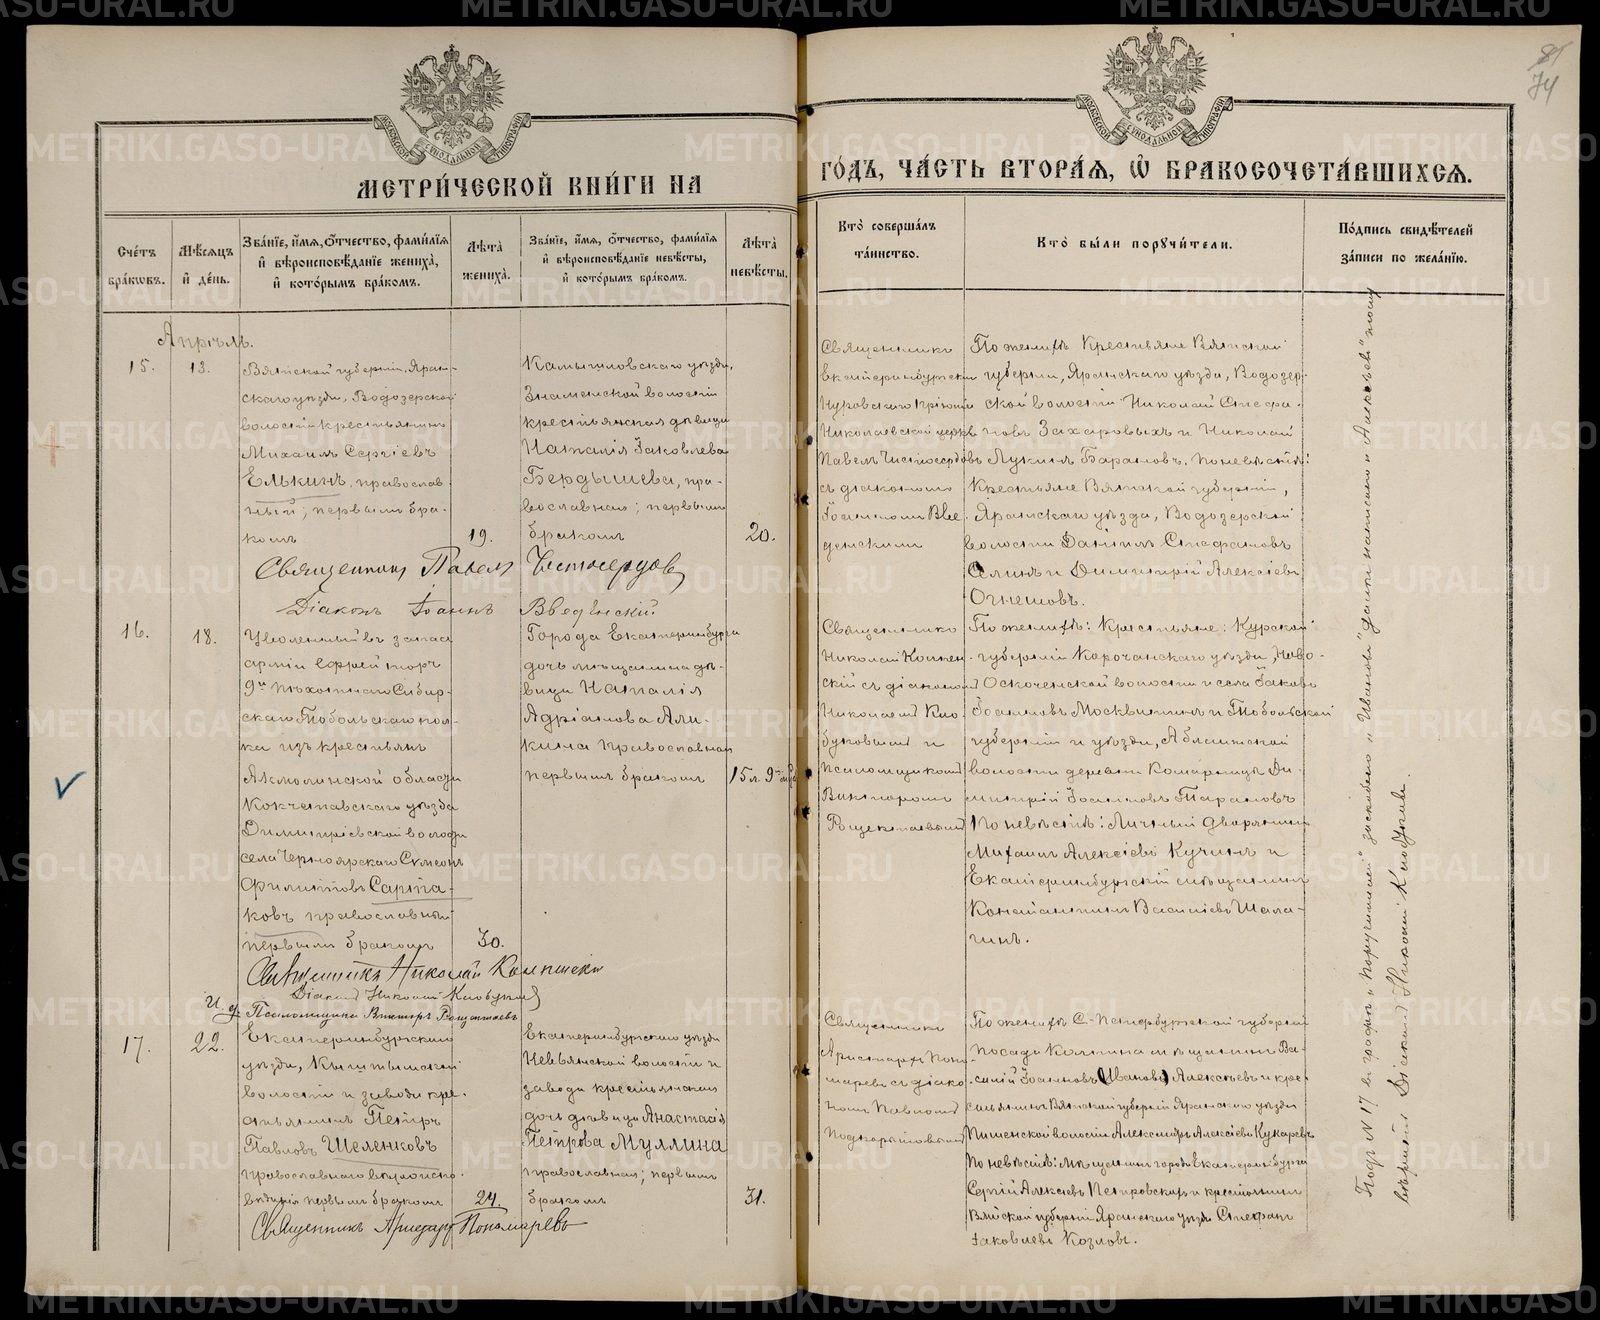 METRIKI.GASO-URAL.RU
85
74
МОСКОВСКОЙ СѴНОДАЛЬНОЙ ТИПОГРАФІИ
МОСКОВСКОЙ СѴНОДАЛЬНОЙ ТИПОГРАФІИ
МЕТРИ́ЧЕСКОЙ КНИ́ГИ НА
ГО́ДЪ, ЧА́СТЬ ВТОРА́Я, Ѽ БРАКОСОЧЕТА́ВШИХСЯ.
Сче́тъ бра́ковъ.
Мѣ́сяцъ и́ де́нь.
Зва́нїе, и́мя, ѻ́тчество, фами́лїя и́ вѣроисповѣ́данїе жениха̀, и́ кото́рымъ бра́комъ.
Лѣ́та̀ жениха̀.
Зва́нїе, и́мя, ѻ́тчество, фами́лїя и́ вѣроисповѣ́данїе невѣ́сты, и́ кото́рымъ бра́комъ.
Лѣ́та̀ невѣ́сты.
Кто̀ соверша́лъ та́инство.
Кто̀ бы́ли поручи́тели.
По́дпись свидѣ́телей за́писи по жела́нїю.
Апрѣль.
15.
13.
Вятской губерніи, Яран-
скаго уѣзда, Водозерской
волости крестьянинъ
Михаилъ Сергіевъ
Елькинъ, православ-
ный; первымъ бра-
комъ
19.
Камышловскаго уѣзда,
Знаменской волости
крестьянская дѣвица
Наталія Іаковлева
Бердышева, пра-
вославная; первымъ
бракомъ
20.
Священникъ Павелъ Чистосердовъ
Діаконъ Іоаннъ Введенскій
Священникъ
Екатеринбургской
Нуровскаго пріюта
Николаевской церкв
Павелъ Чистосердовъ
съ діакономъ
Іоанномъ Вве-
денскимъ
По женихѣ Крестьяне Вятской
губерніи, Яранскаго уѣзда, Водозер-
ской волости Николай Стефа-
новъ Захаровыхъ и Николай
Лукинъ Барановъ. По невѣстѣ:
Крестьяне Вятской губерніи,
Яранскаго уѣзда, Водозерской
волости Даніилъ Стефановъ
и Димитрій Алексіевъ
Огнетовъ.
16.
18.
Уволенный въ запасъ
арміи Ефрейторъ
9го пѣхотнаго Сибир-
скаго Тобольскаго пол-
ка изъ крестьянъ
Акмолинской области
Кокчетавскаго уѣзда
Димитріевской волости
села Черноярскаго Сѵмеонъ
Филипповъ Сарта-
ковъ православный
первымъ бракомъ
30.
Города Екатеринбурга
дочь мѣщанина дѣ-
вица Наталія
Адріанова Али-
кина православная
первымъ бракомъ
15 л. 9
Священникъ Николай
Діаконъ Николай Клобуковъ
И. д. Псаломщика Викторъ
Священникъ
Николай
съ діакономъ
Николаемъ Кло-
буковымъ и
псаломщикомъ
Викторомъ
По женихѣ: Крестьяне: Курской
губерніи Корочанскаго уѣзда, Ново-
Оскоченской волости и села Іаковъ
Іоанновъ Москвитинъ и Тобольской
губерніи и уѣзда, Абалакской
волости деревни Комарицы Ди-
митрій Іоанновъ Тарановъ
По невѣстѣ: Личный дворянинъ
Михаилъ Алексіевъ Кучинъ и
Екатеринбургскій мѣщанинъ
Константинъ Василіевъ Шала-
гинъ.
17.
22.
Екатеринбургскаго
уѣзда, Кыштымской
волости и завода кре-
стьянинъ Петръ
Павловъ Щеленковъ
православнаго вѣроиспо-
вѣданія первымъ бракомъ
24.
Екатеринбургскаго уѣзда
Невьянской волости и
завода крестьянская
дочь дѣвица Анастасія
Петрова Муллина
православная; первымъ
бракомъ
31.
Священникъ Аристархъ Пономаревъ
Священникъ
Аристархъ Поно-
маревъ съ діако-
номъ Павломъ
Подкорытовымъ
По женихѣ С.-Петербургской губерніи
посада Колпина мѣщанинъ Ва-
силій Іоанновъ (Ивановъ) Алексѣевъ и кре-
стьянинъ Вятской губерніи Яранскаго уѣзда
волости Александръ Алексіевъ Кукаревъ
По невѣстѣ: Мѣщанинъ города Екатеринбурга
Сергій Алексіевъ Петровскій и крестьянинъ
Вятской губерніи Яранскаго уѣзда Стефанъ
Іаковлевъ Козловъ.
Подъ № 17 въ графѣ „поручителей“ зачеркнутое „Ивановъ“ и написанное „Алексѣевъ“
вѣрно. Діаконъ Николай Клобуковъ.